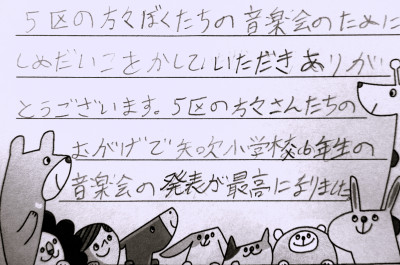 5区の方々ぼくたちの音楽会のために
しめだいこをかしていただきありが
とうございます。5区の方々さんたちの
おかげで矢吹小学校6年生の
音楽会の発表が最高になりました